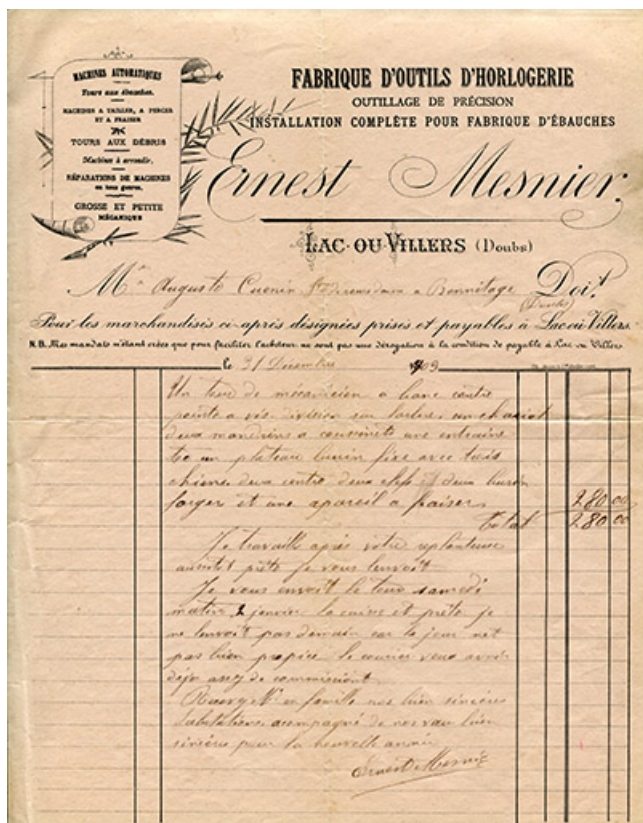 MACHINES AUTOMATIQUES
Tours aux ébauches.
MACHINES A TAILLER, A PERCER
ET A FRAISER
TOURS AUX DÉBRIS
Machines à arrondir.
RÉPARATIONS DE MACHINES
en tous genres.
GROSSE ET PETITE
MÉCANIQUE
FABRIQUE D'OUTILS D'HORLOGERIE
OUTILLAGE DE PRÉCISION
INSTALLATION COMPLÈTE POUR FABRIQUE D'ÉBAUCHES
Ernest Mesnier.
LAC-OU-VILLERS (Doubs)
M Auguste Cuenin a Bonnétage Doit
(Doubs)
Pour les marchandises ci-après désignées prises et payables à Lac-ou-Villers.
N.B. Mes mandats n'étant créés que pour faciliter l'acheteur ne sont pas une dérogation à la condition de payable à Lac-ou-Villers
le 31 Décembre 1909
Un tour de mécanicien a banc contre
pointe a vis division sur un chariot
deux mandrins a coussinets une
un plateau burin fixe avec trois
chiens deux centre deux clefs et deux burin
forger et une apareil a fraiser 280.00
Total 280.00
Je travaille après votre replanteuse
aussitôt prête Je vous lenvoit
Je vous envoit le tour samedi
matin 2 janvier la caisse et prête je
ne lenvoit pas demain car le jour net
pas bien propice le courier veux avoir
déja assez de commissiont
M. en famille nos bien sincères
Salutations acompagné de nos vœu bien
sincères pour la nouvelle année
Ernest Mesnier